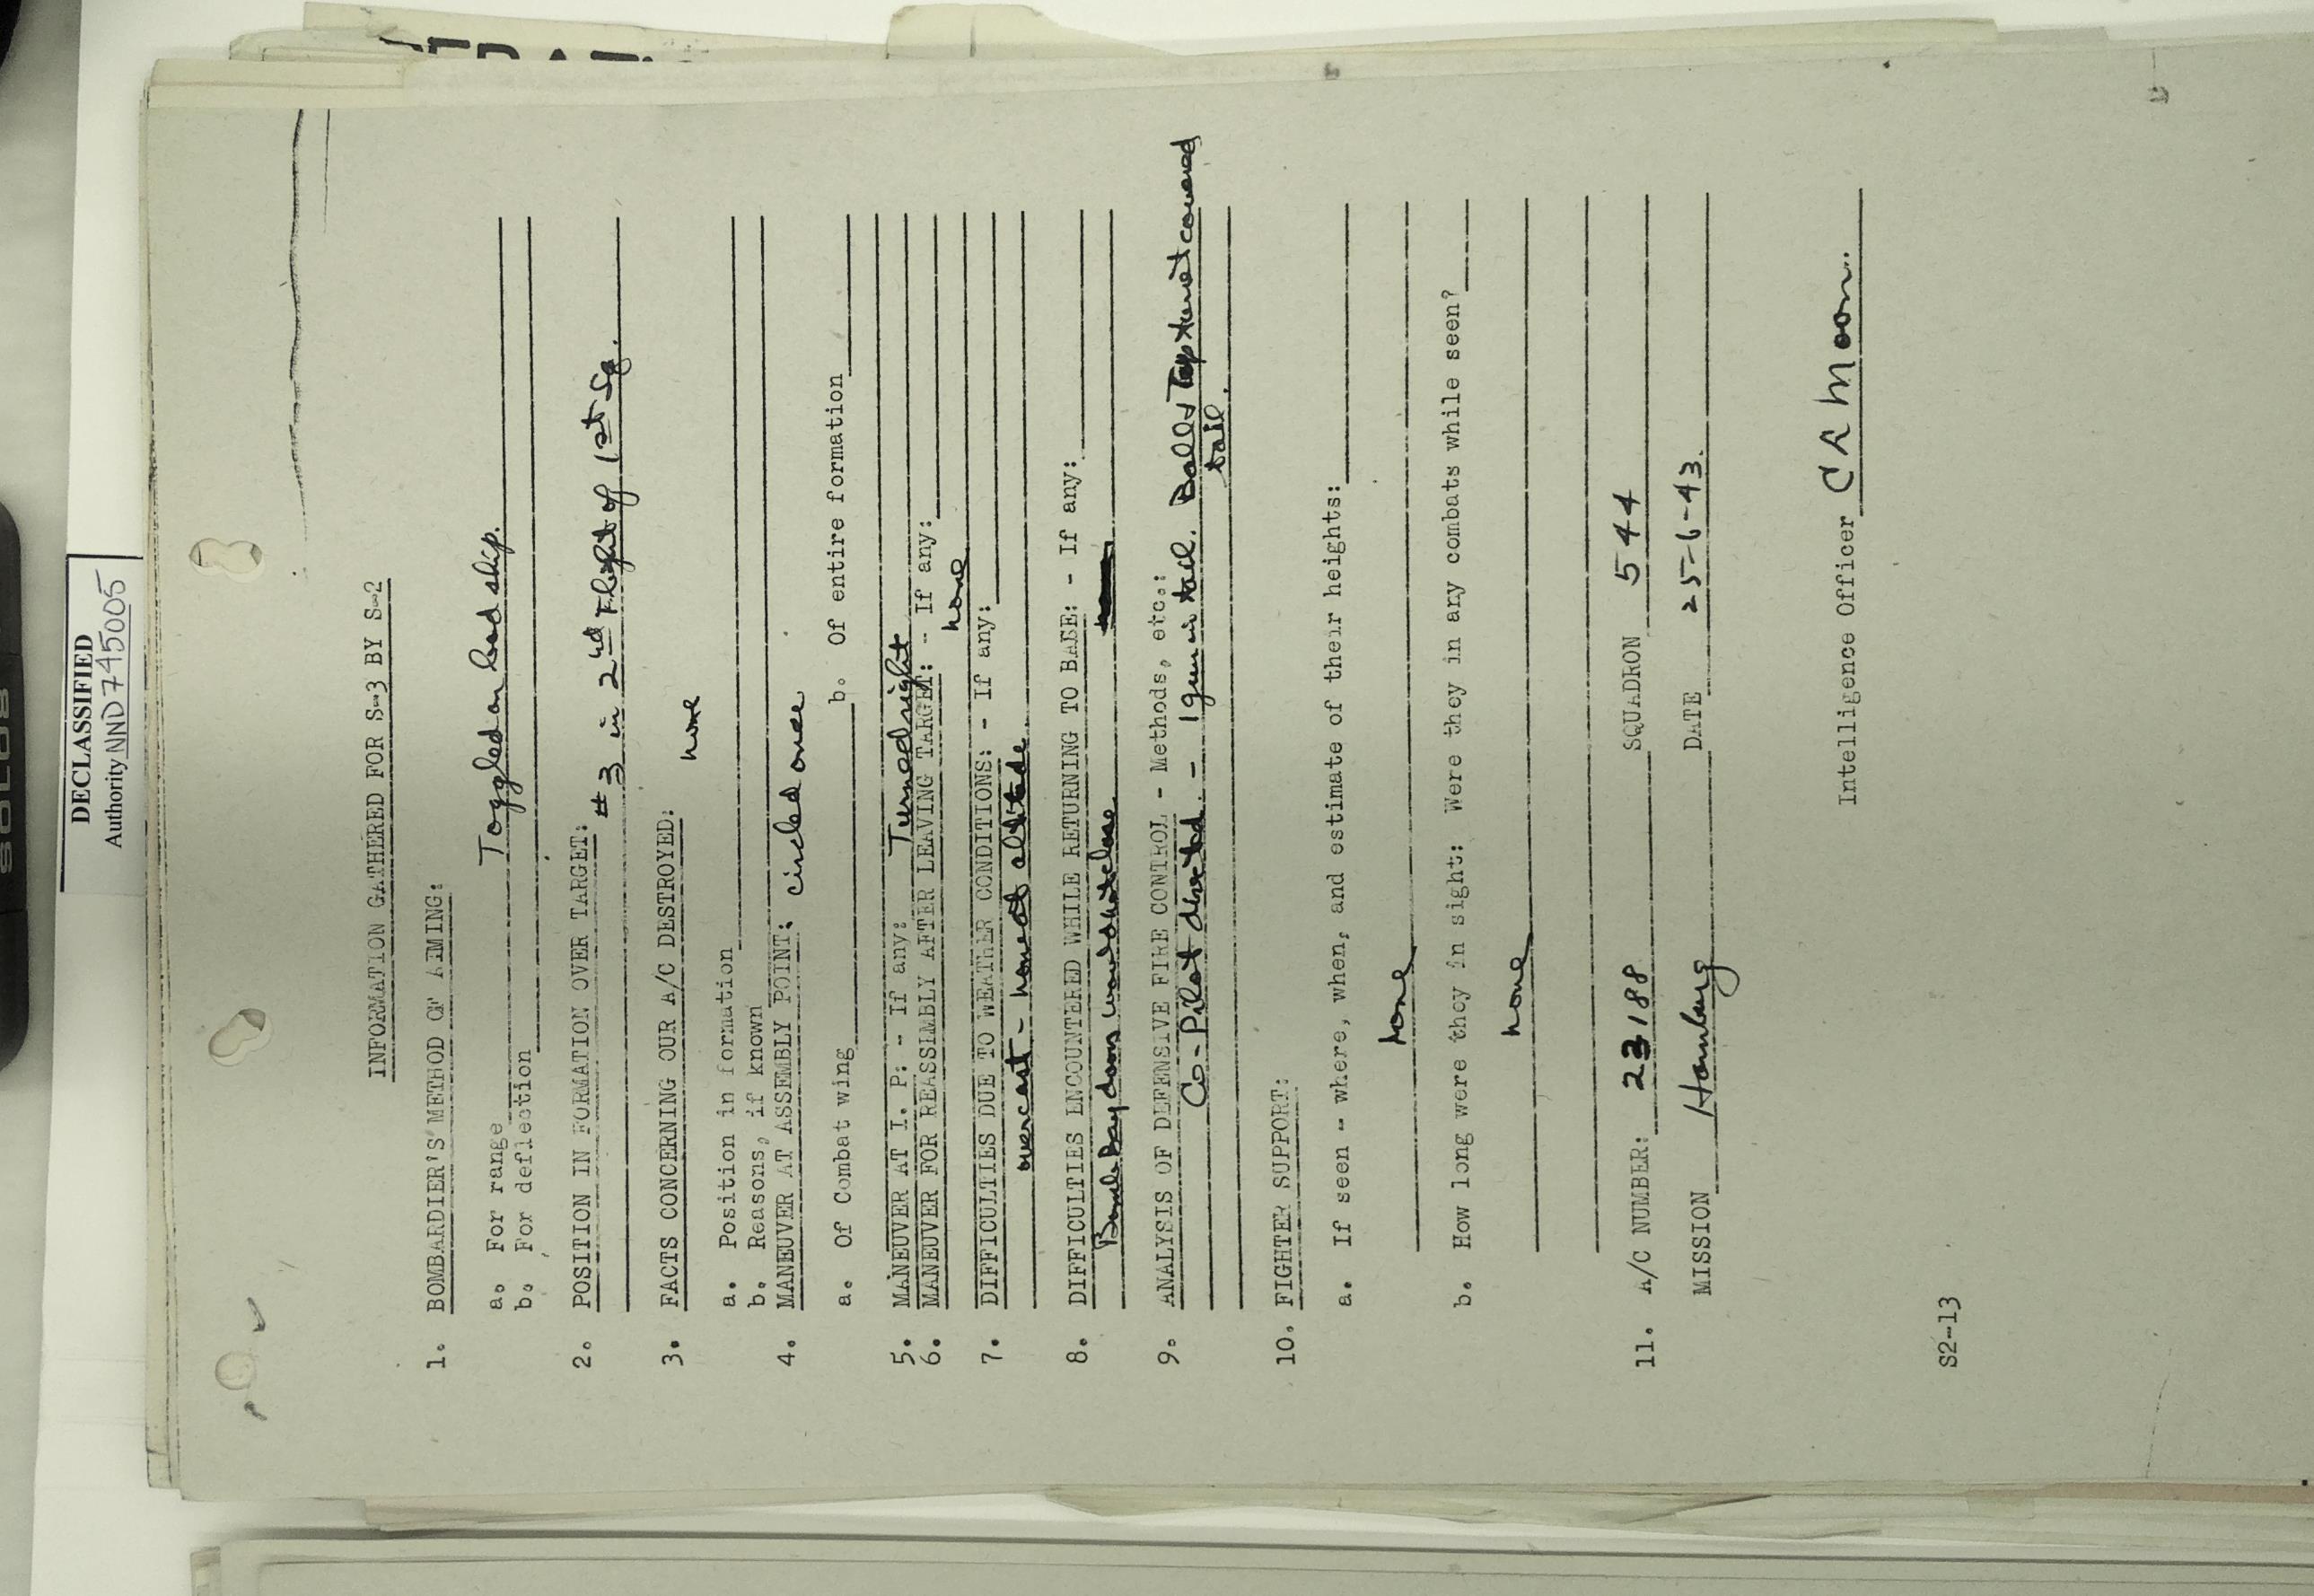 DECLASSIFIED
Authority NND 745005
INFORMATION GATHERED FOR S-3 BY S-2
1. BOMBARDIER'S METHOD OF AIMING:
a. For range Toggled on lead ship.
b. For deflection
2. POSITION IN FORMATION OVER TARGET:
#3 in 2nd Flight of 1st Sq.
3. FACTS CONCERNING OUR A/C DESTROYED:
none
a. Position in formation
b. Reasons, if known
4. MANEUVER AT ASSEMBLY POINT: circled once
a. Of Combat wing b. Of entire formation
5. MANEUVER AT I. P: - If any: Turned right
6. MANEUVER FOR REASSEMBLY AFTER LEAVING TARGET: - If any:
none
7. DIFFICULTIES DUE TO WEATHER CONDITIONS: - If any:
overcast - none at altitude
8. DIFFICULTIES ENCOUNTERED WHILE RETURNING TO BASE: - If any:
Bomb Bay doors wouldn't close
9. ANALYSIS OF DEFENSIVE FIRE CONTROL - Methods, etc.:
Co-Pilot directed - 1 gun in tail. Ball & Top turret covered
tail.
10. FIGHTER SUPPORT:
a. If seen - where, when, and estimate of their heights:
none
b. How long were they in sight: Were they in any combats while seen?
none
11. A/C NUMBER: 23188 SQUADRON 544
MISSION Hamburg DATE 25-6-43.
Intelligence Officer C A Moon
S2-13